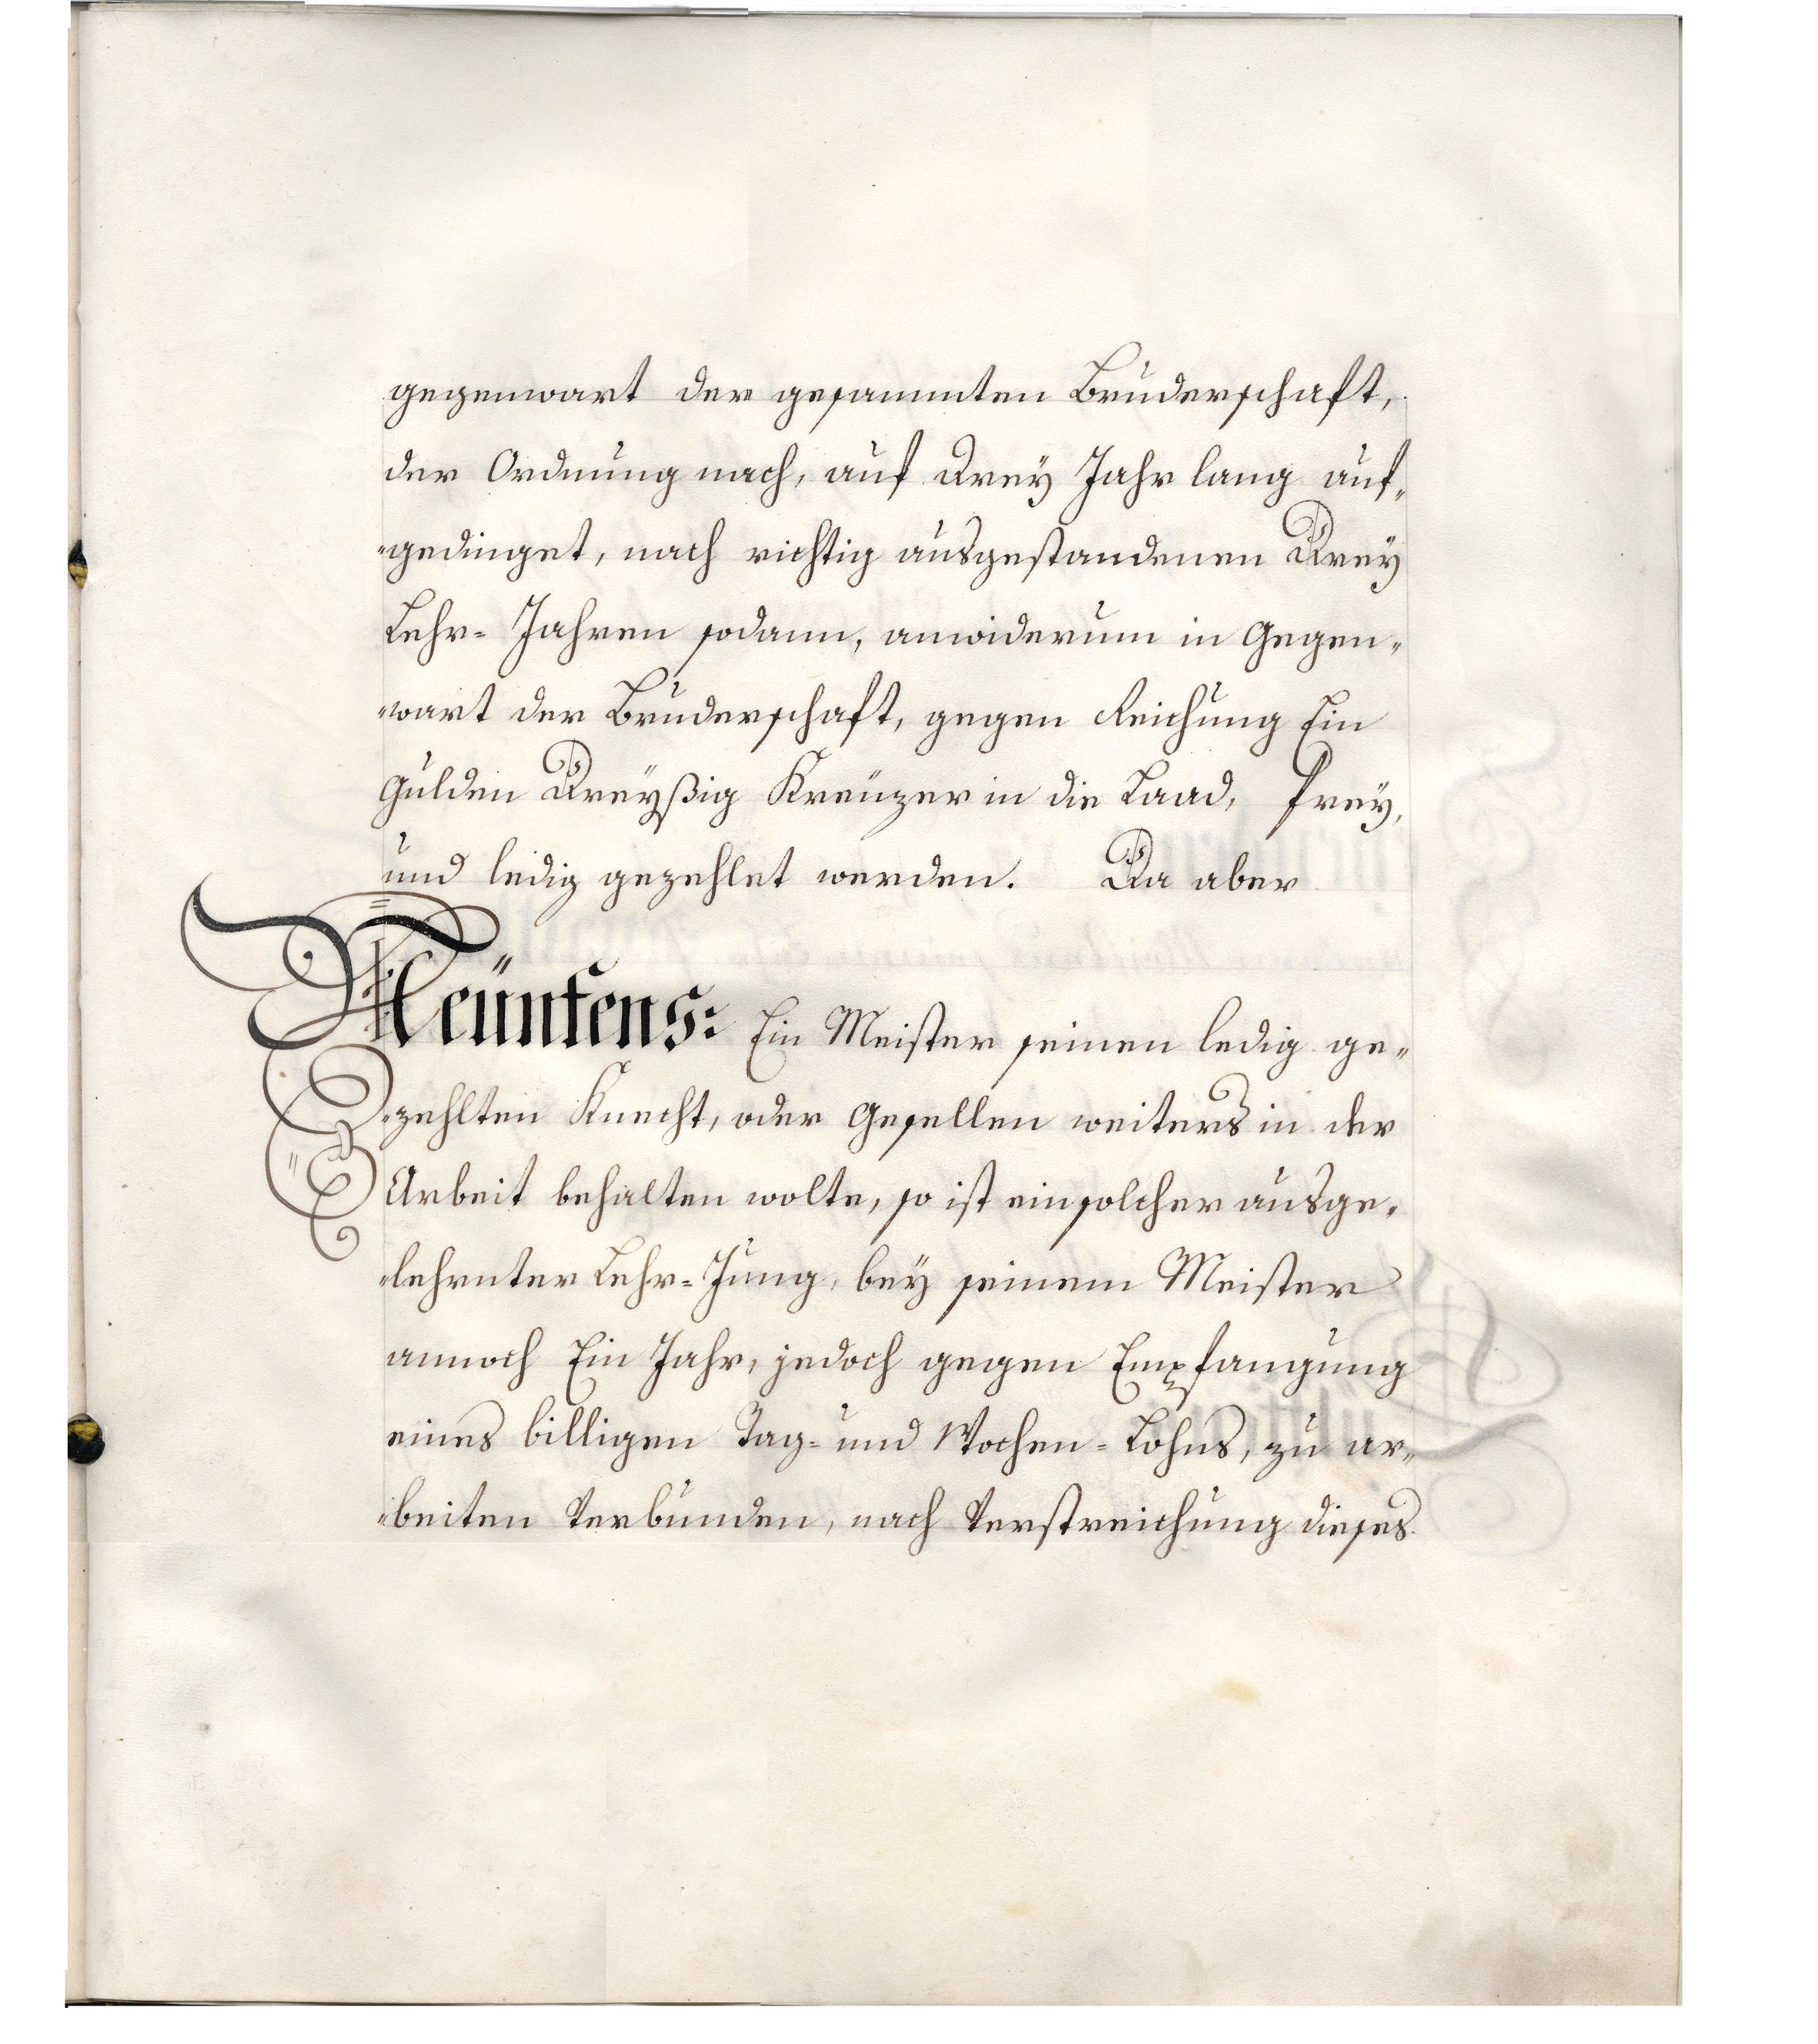 gegenwart der gesammten Bruderschaft,
der Ordnung nach, auf Drey Jahr lang auf„
„gedinget, nach richtig ausgestandenen Drey
Lehr= Jahren sodann, anwiderum in Gegen„
„wart der Bruderschaft, gegen Reichung Ein
Gulden Dreyßig Kreuzer in die Laad, frey,
und ledig gezehlet werden. Da aber
Neüntens: Ein Meister seinen ledig ge„
„zehlten Knecht, oder Gesellen weiters in der
Arbeit behalten wolte, so ist ein solcher ausge„
„lehrnter Lehr=Jung, bey seinem Meister
annoch Ein Jahr, jedoch gegen Empfangung
eines billigen Tag= und Wochen=Lohns, zu ar„
„beiten Verbunden, nach Verstreichung dieses